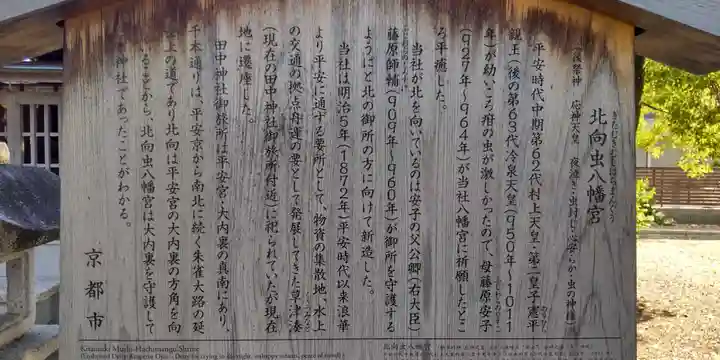 きたむきむしはちまんぐう
北向虫八幡宮
(御祭神 応神天皇 夜泣き・虫封じ・心安らか・虫の神様)
平安時代中期第62代村上天皇・第二皇子憲平
親王(後の第63代冷泉天皇(950年~1011
年)が幼いころ疳の虫が激しかったので、母藤原安子
(927年~964年)が当社八幡宮に祈願したとこ
ろ平癒した。
当社が北を向いているのは安子の父公卿(右大臣)
藤原師輔(909年~960年)が御所を守護する
ようにと北の御所の方に向けて新造した。
当社は明治5年(1872年)平安時代以来浪華
より平安に通ずる要所として、物資の集散地、水上
の交通の拠点舟運の要として発展してきた草津湊
(現在の田中神社御旅所付近)に祀られていたが現在
地に遷座した。
田中神社御旅所は平安宮・大内裏の真南にあり、
千本通りは、平安京から南北に続く朱雀大路の延
上の道であり北向は平安宮の大内裏の方角を向
いることから、北向虫八幡宮は大内裏を守護して
神社であったことがわかる。
京都市
Kitamuki Mushi-Hachimangu Shrine
北向虫八幡宮